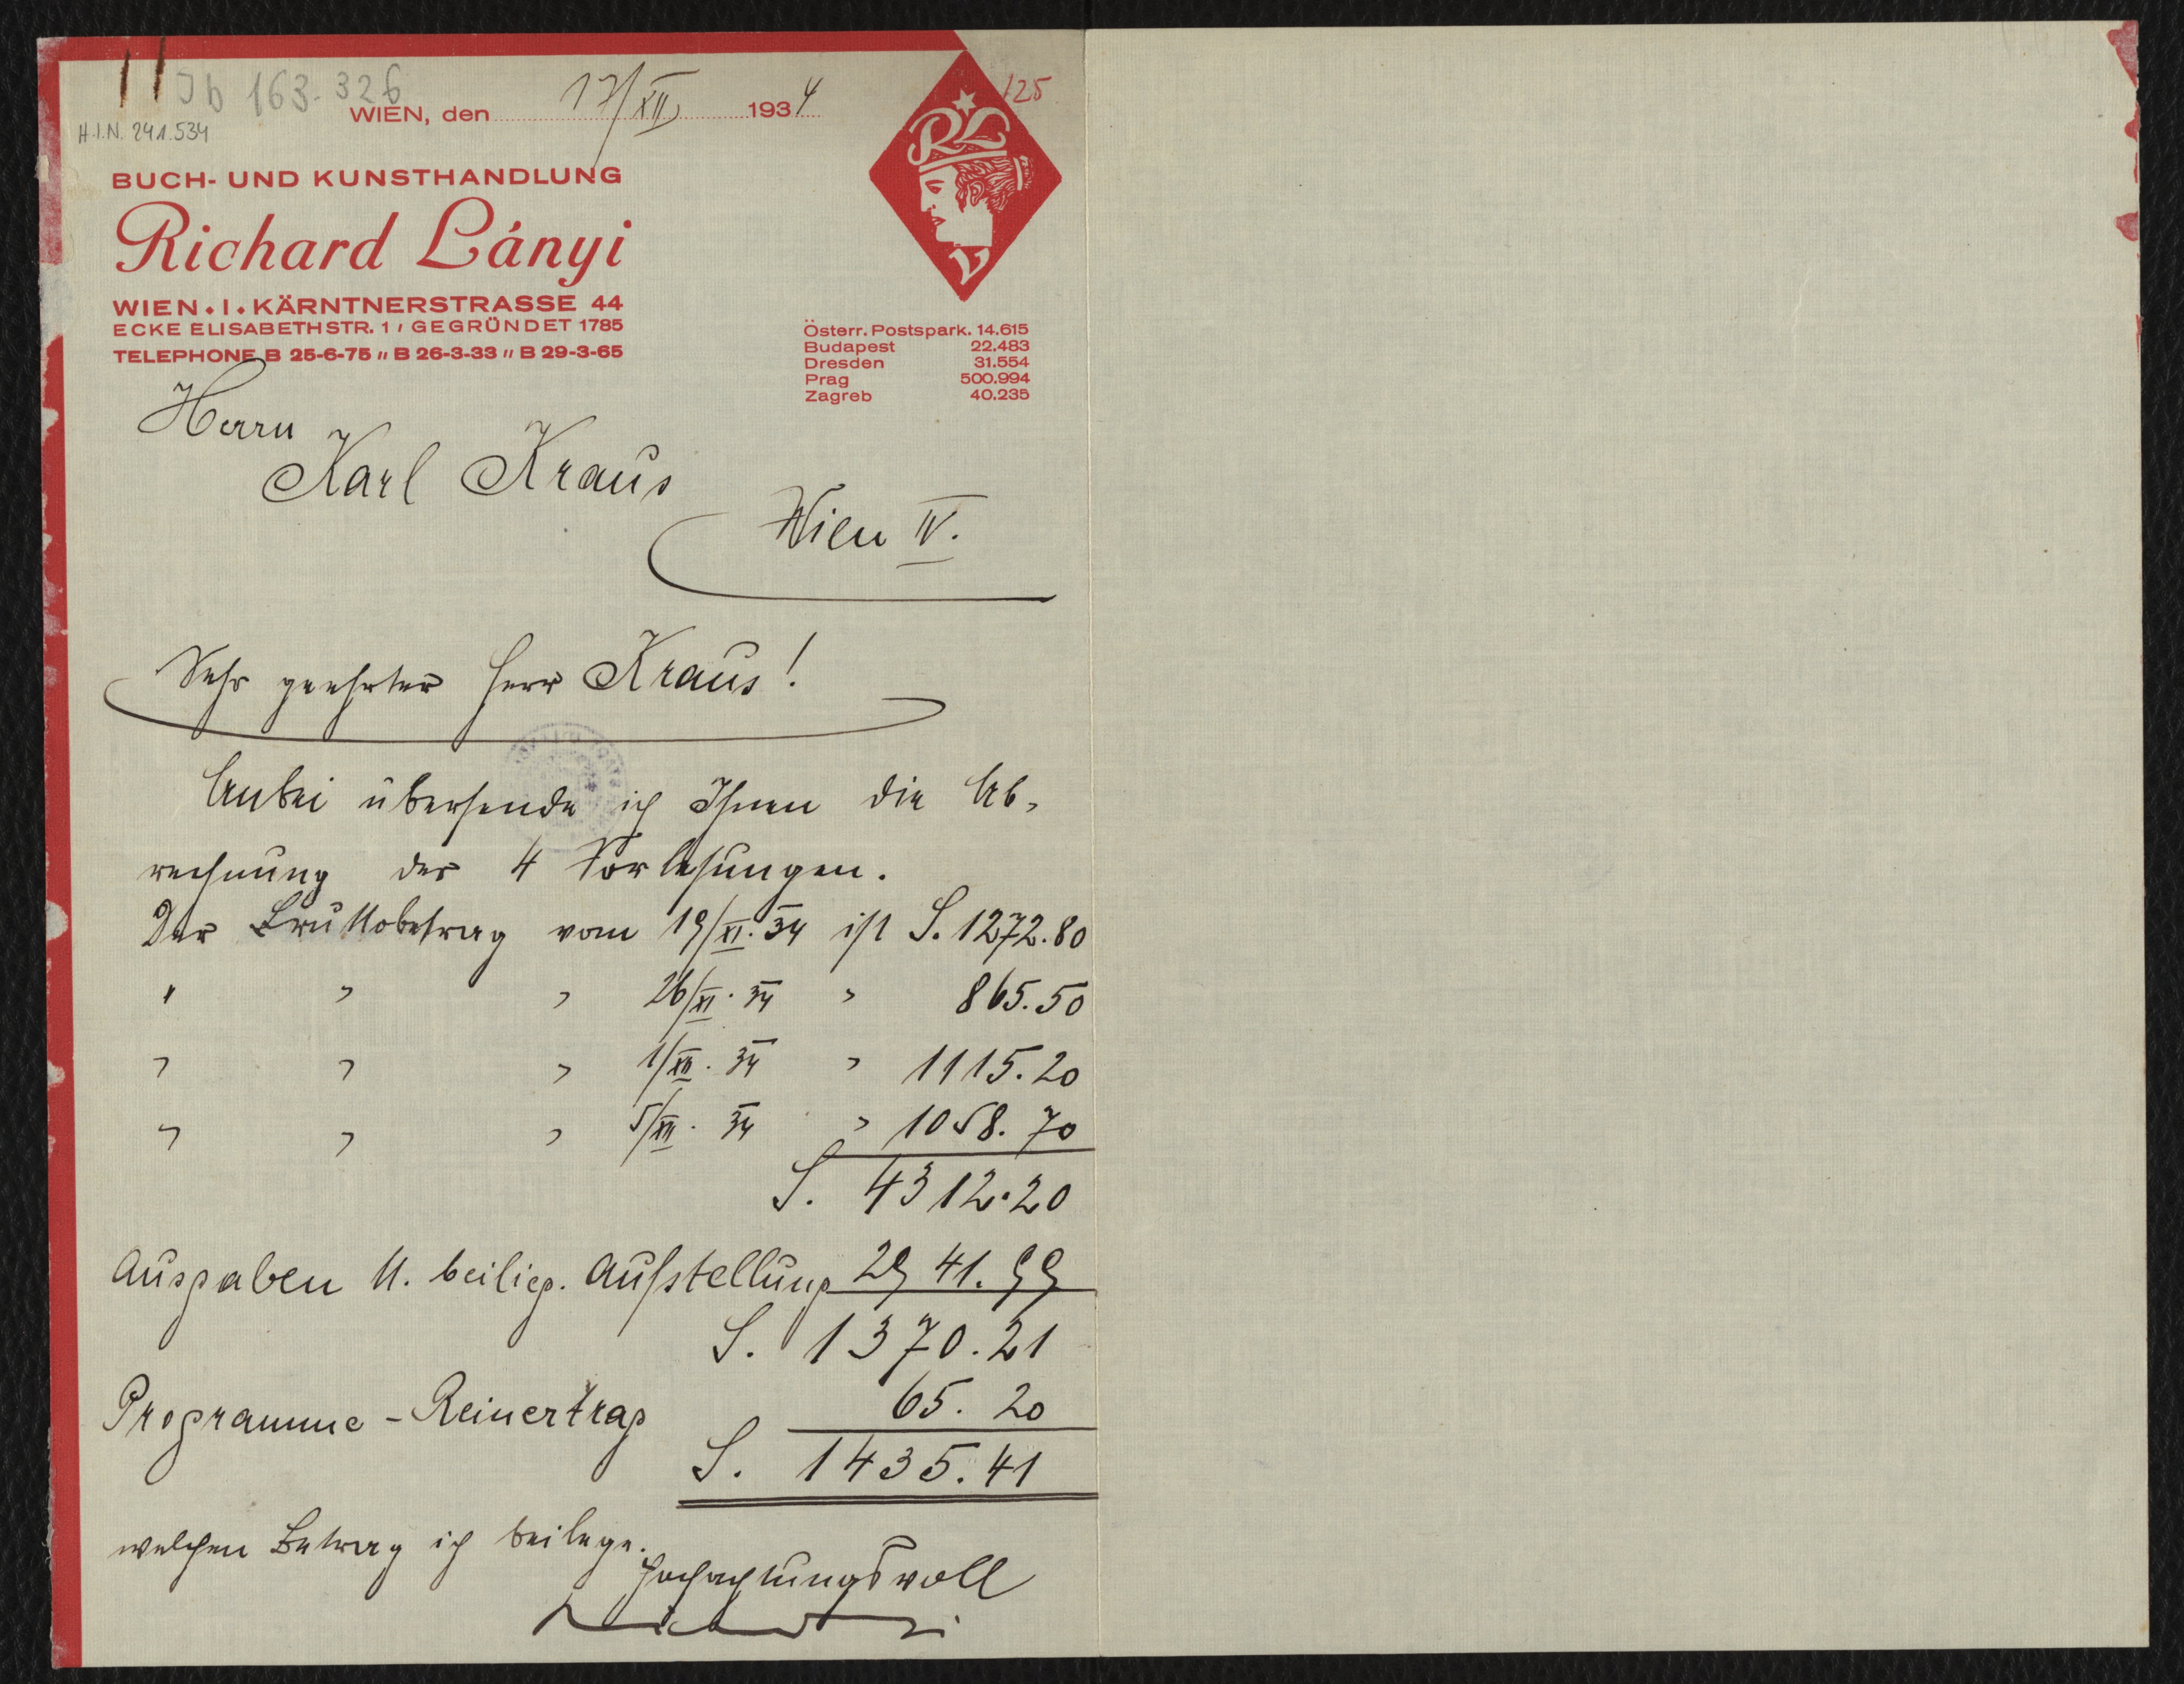 Jb 163.326
125
WIEN, den 17/XII 1934
H.I.N. 241.534
RL
BUCH- UND KUNSTHANDLUNG
Richard Lányi
WIEN • I • KÄRNTNERSTRASSE 44
ECKE ELISABETHSTR. 1 / GEGRÜNDET 1785
TELEPHONE B 25-6-75 // B 26-3-33 // B 29-3-65
Österr. Postspark. 14.615
Budapest 22.483
Dresden 31.554
Prag 500.994
Zagreb 40.235
Herrn
Karl Kraus
Wien IV.
Sehr geehrter Herr Kraus!
Anbei übersende ich Ihnen die Ab-
rechnung der 4 Vorlesungen.
Der Bruttobetrag vom 19/XI. 34 ist S. 1272.80
" " " 26/XI. 34 " 865.50
" " " 1/XII. 34 " 1115.20
" " " 5/XII. 34 " 1058.70
S. 4312.20
Ausgaben lt. beilieg. Aufstellung 2941.99
S. 1370.21
Programme - Reinertrag 65.20
S. 1435.41
welchen Betrag ich beilege.
Hochachtungsvoll